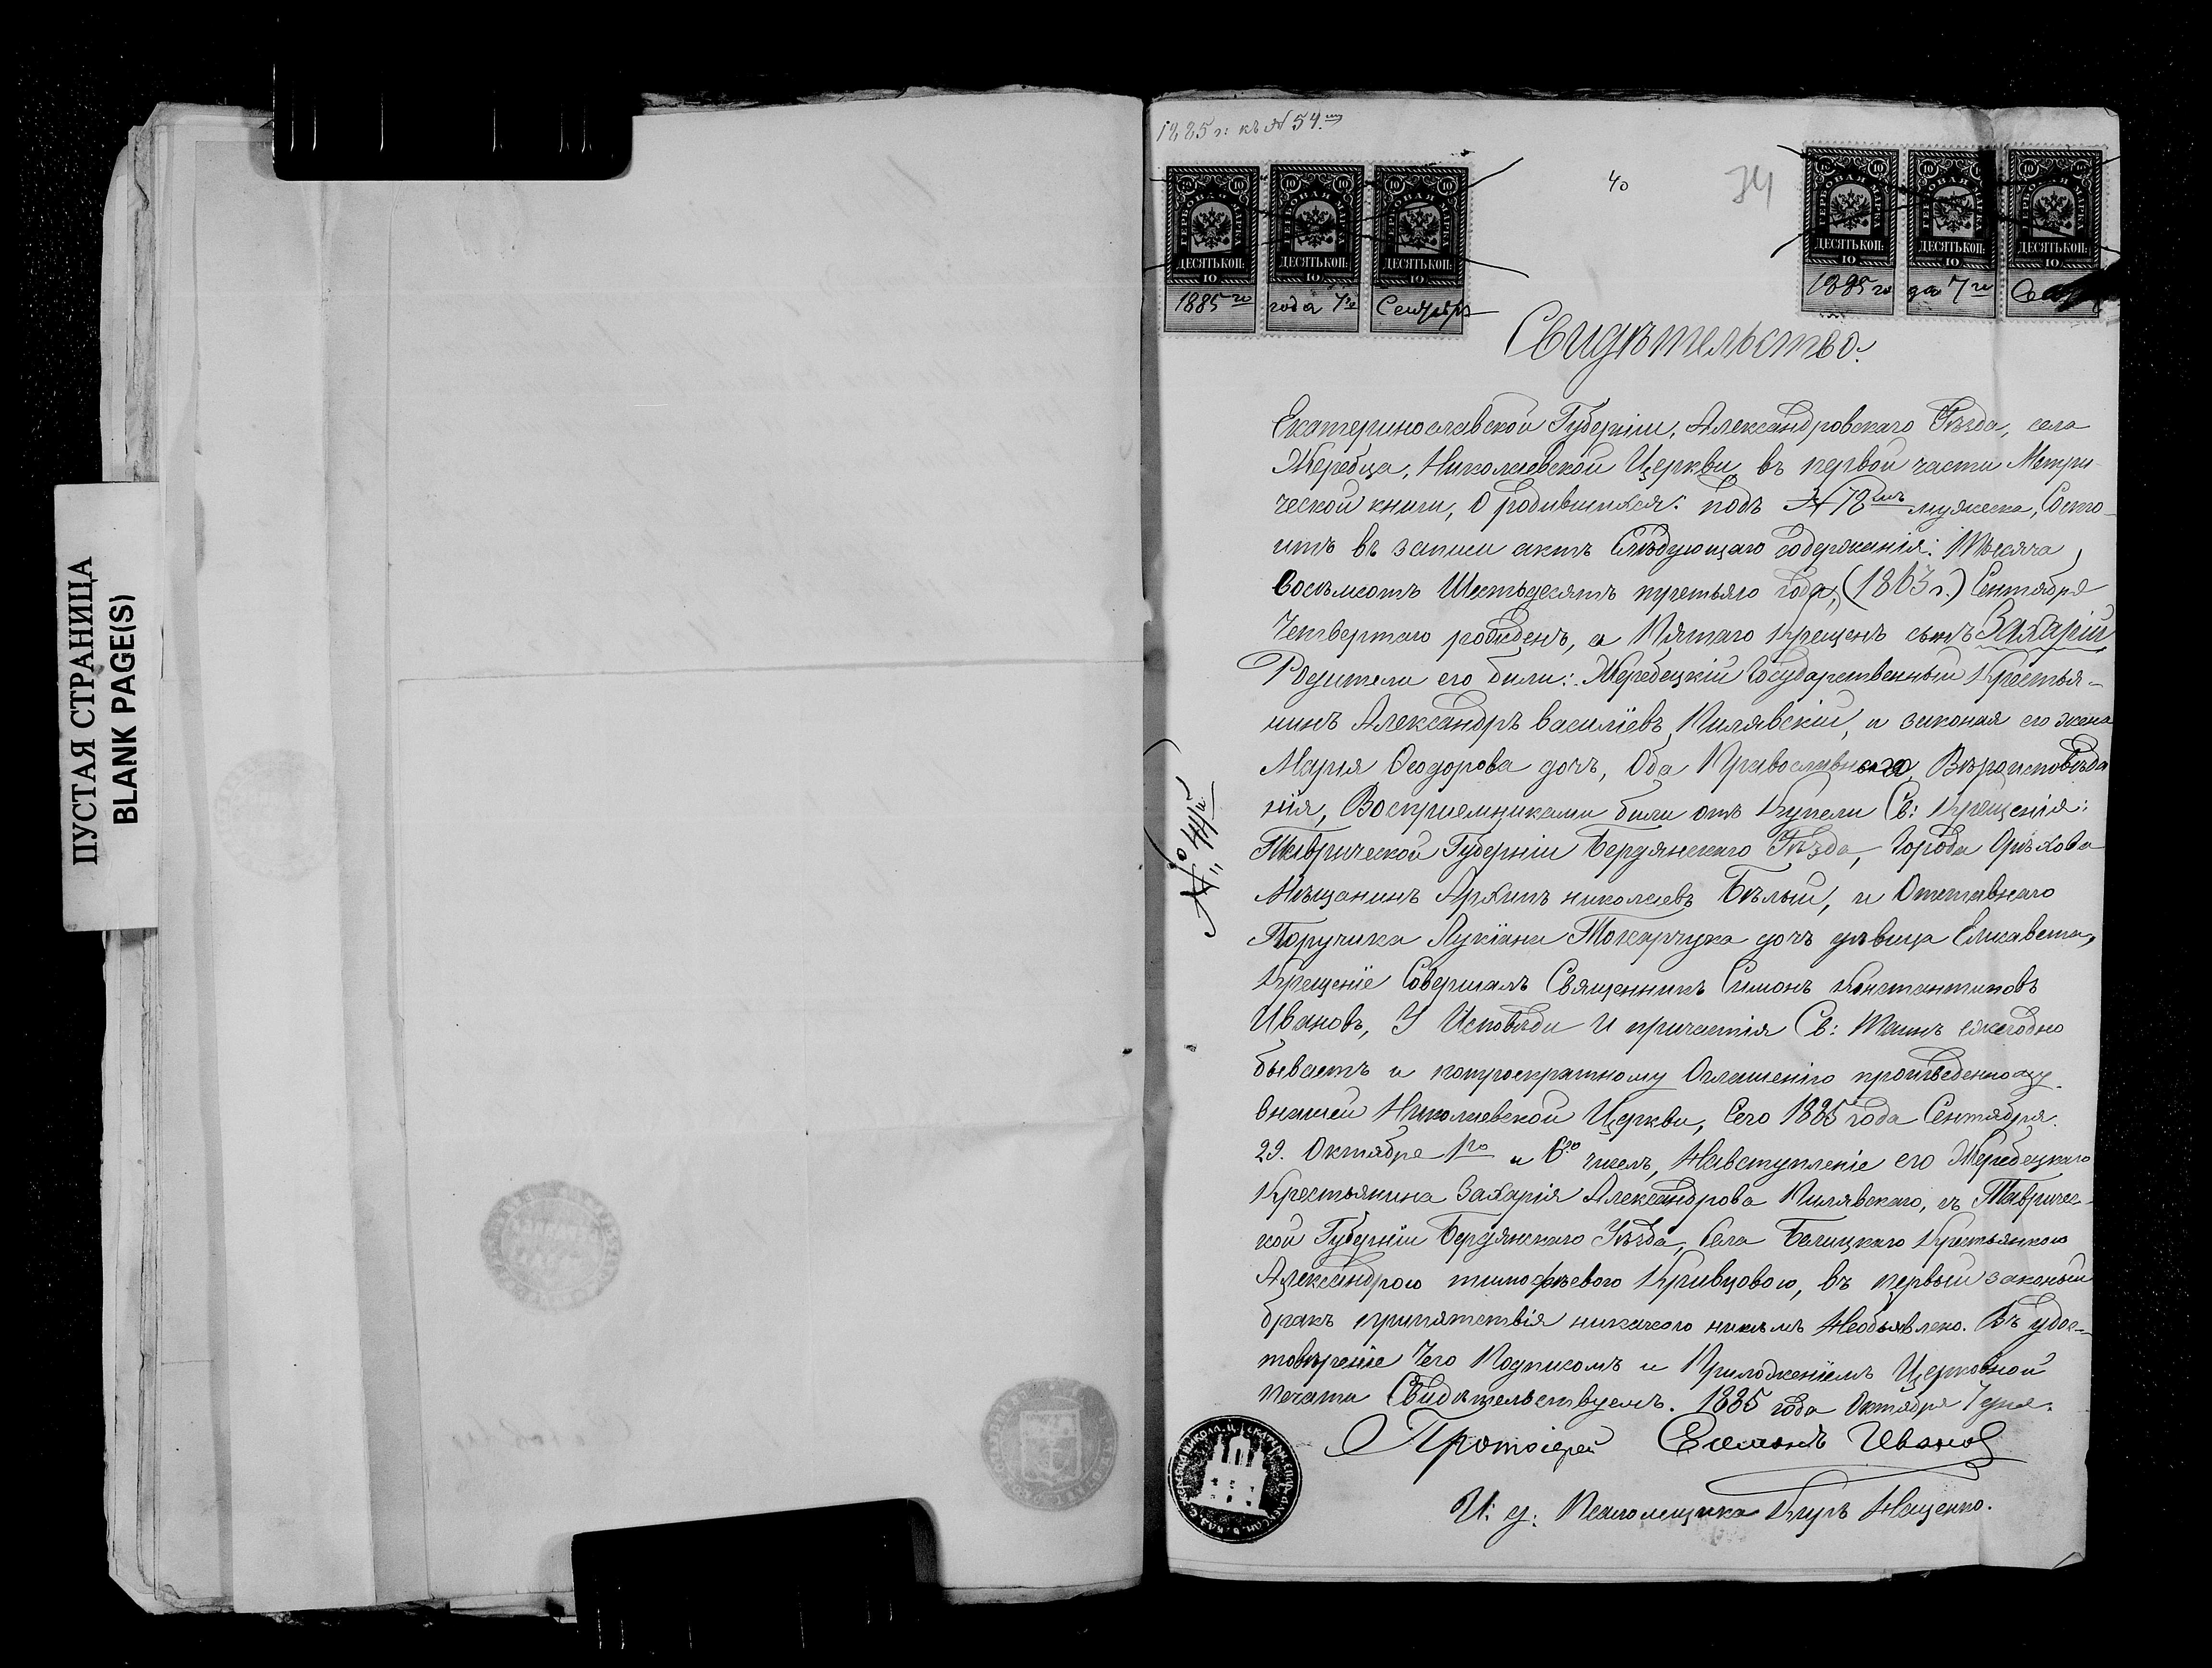 ПУСТАЯ СТРАНИЦА
BLANK PAGE(S)
1885 г: къ № 54.му
40
34
ГЕРБОВАЯ МАРКА ГЕРБОВАЯ МАРКА ГЕРБОВАЯ МАРКА
ДЕСЯТЬ КОП: ДЕСЯТЬ КОП: ДЕСЯТЬ КОП:
10 10 10
1885 го года 7го Сентября
ГЕРБОВАЯ МАРКА ГЕРБОВАЯ МАРКА ГЕРБОВАЯ МАРКА
ДЕСЯТЬ КОП: ДЕСЯТЬ КОП: ДЕСЯТЬ КОП:
10 10 10
1885 го да 7го
Свидѣтельство.
Екатеринославской Губерніи, Александровскаго Уѣзда, села
Жеребца, Николаевской Церкви, въ первой части Метри-
ческой книги, О родившихся: подъ № 72 мужеска, Состо-
итъ въ записи актъ Слѣдующаго содержанія: Тысяча
восѣмсотъ Шестьдесятъ третьяго года, (1863 г.) Сентября
Четвертаго рожденъ, а Пятаго Крещенъ сынъ Захарій
Родители его били: Жеребецкій Государственный Крестья-
нинъ Александръ василіевъ Пилявскій, и законая его жена
Мария Феодорова дочь, Оба Православнаго Вѣроисповѣда
нія, Восприемниками били отъ Купели Св: Крещенія:
Таврической Губерніи Бердянскаго Уѣзда, Города Орѣхова
Мѣщанинъ Архипъ николаевъ Бѣлый, и Отставнаго
Поручика Лукіана Токарчука дочь дѣвица Елисавета,
Крещеніе Совершалъ Священникъ Симонъ Константиновъ
Ивановъ, У Исповѣди и причастія Св: Таинъ ежегодно
бываетъ и потроекратному Оглашенію произведенному
внашей Николаевской Церкви, Сего 1885 года Сентября
29. Октября 1го и 6го чиселъ, Навступленіе его Жеребецкаго
Крестьянина Захарія Александрова Пилявскаго, съ Тавричес-
кой Губерніи Бердянскаго Уѣзда, Села Бѣлицкаго Крестьянкою
Александрою тимофѣевою Кривцовою, въ первый законый
бракъ припятствія никакого никѣмъ Необъявлено. Въ удос-
товѣреніе Чего Подписомъ и Приложеніемъ Церковной
печати Свидѣтельствуемъ. 1885 года Октября 7 дня.
Протоіерей Симонъ Ивановъ
И: д: Псаломщика Киръ Нащенко.